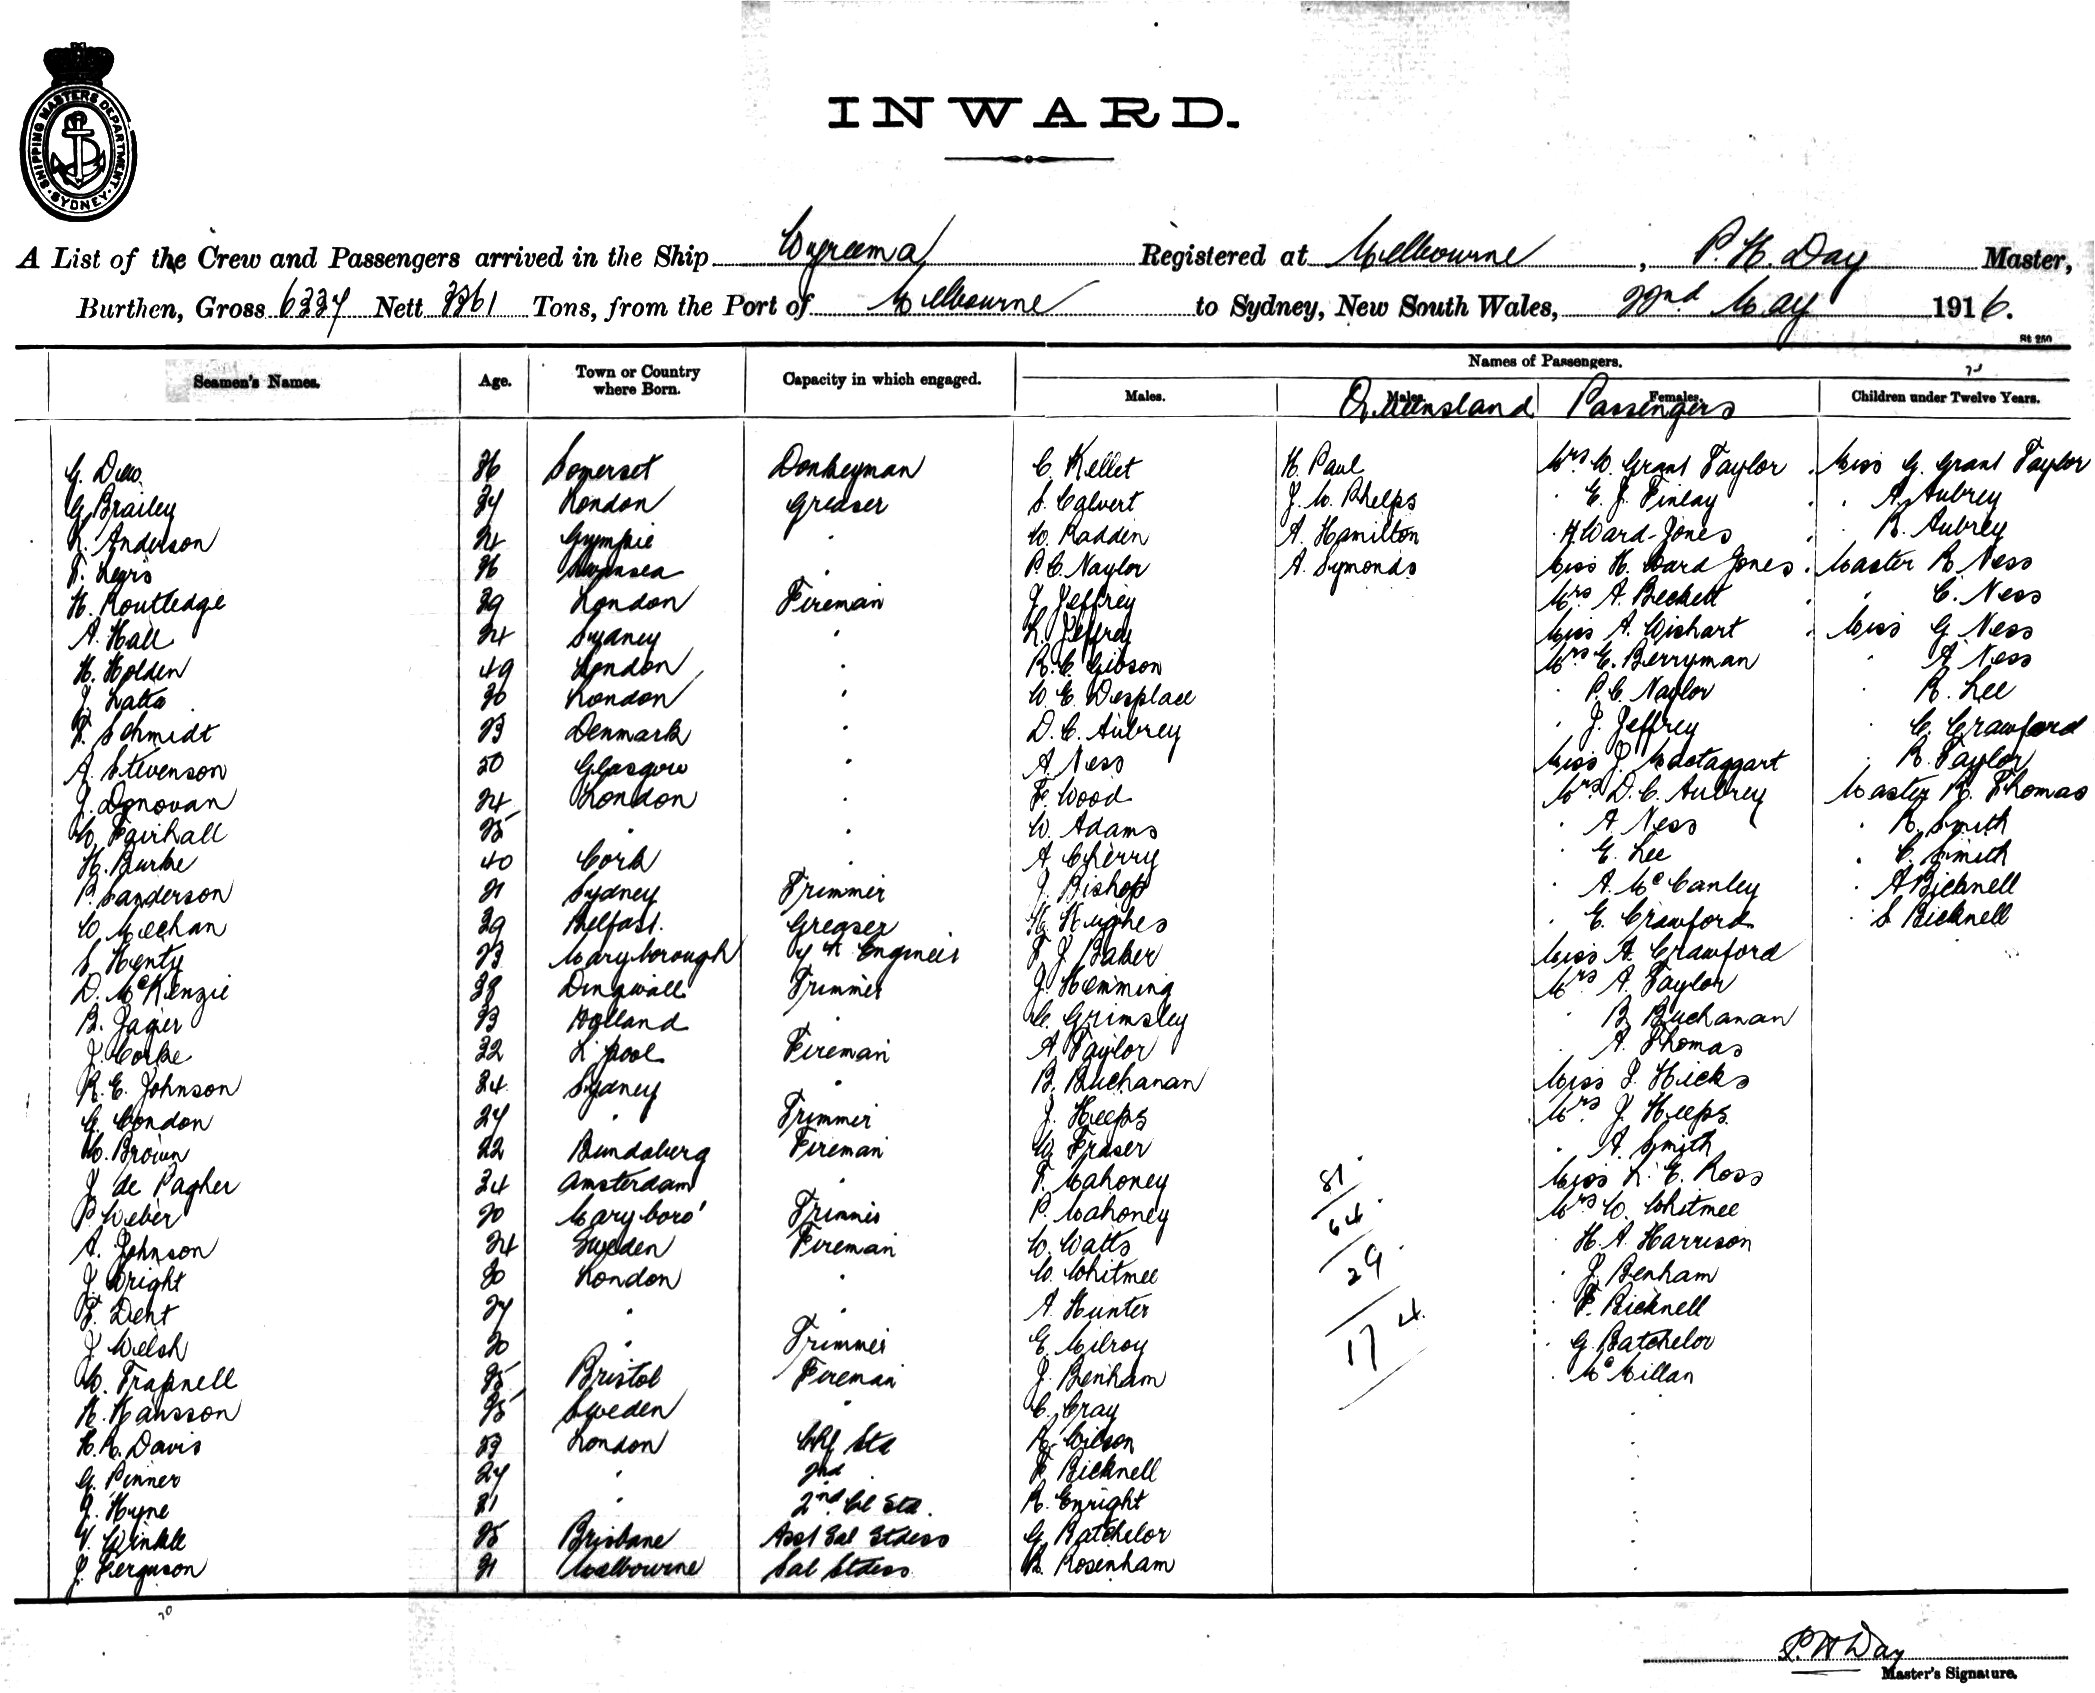 SHIPPING MASTERS DEPARTMENT. SYDNEY.
INWARD.
A List of the Crew and Passengers arrived in the Ship Wyreema Registered at Melbourne, P. H. Day Master,
Burthen, Gross 6334 Nett 3361 Tons, from the Port of Melbourne to Sydney, New South Wales, 22nd May 1916.
St 250
Seamen's Names. Age. Town or Country where Born. Capacity in which engaged. Names of Passengers.
Males. Males. Females. Children under Twelve Years.
Queensland Passengers
G. Dew 36 Somerset Donkeyman C. Kellet H. Paul Mrs W. Grant Taylor Miss G. Grant Taylor
G. Brailey 34 London Greaser S. Calvert J. W. Phelps " E. J. Finlay " A. Aubrey
L. Anderson 24 Gympie " W. Radden A. Hamilton " H Ward-Jones " R. Aubrey
F. 36 Swansea " P. C. Naylor A. Symonds Miss H. Ward Jones Master R Ness
H. Routledge 39 London Fireman J Jeffrey Mrs A. Beckett " C. Ness
A. Hall 24 Sydney " L. Jeffrey Miss A. Wishart Miss G Ness
H. Holden 49 London " R. C. Gibson Mrs E. Berryman " A Ness
J. Latta 30 London " W. E. Desplace " P. C. Naylor " R. Lee
F. Schmidt 23 Denmark " D. C. Aubrey " J. Jeffrey " C. Crawford
A. Stevenson 50 Glasgow " A. Ness Miss J. Mactaggart " R. Taylor
J. Donovan 24 London " F. Wood Mrs D. C. Aubrey Master R. Thomas
W. Fairhall 25 " " W. Adams " A Ness " R. Smith
H. Burke 40 Cork " A. Cherry " E. Lee " C. Smith
P. Sanderson 21 Sydney Trimmer J. Bishop " A. McCanley " A Bicknell
W. Meehan 39 Belfast. Greaser H. Hughes " E. Crawford " S Bicknell
S Henty 23 Maryborough 4th Engineer F. J Baker Miss A. Crawford
D. McKenzie 38 Dingwall Trimmer J. Hemming Mrs A. Taylor
B. Jager 23 Holland " C. Grimsley " B Buchanan
J. Corke 32 L'pool Fireman A Taylor " A. Thomas
R. E. Johnson 24 Sydney " B. Buchanan Miss J. Hicks
C. Condon 24 " Trimmer J. Heeps Mrs J. Heeps
W. Brown 22 Bundaberg Fireman W. Fraser " A. Smith
J de Pagher 34 Amsterdam " F. Mahoney 81 Miss L. E. Ross
P Weber 20 Maryboro' Trimmer P. Mahoney 64 Mrs W. Whitmee
A. Johnson 24 Sweden Fireman W. Watts " H. A. Harrison
J. Wright 30 London " W. Whitmee 29 " J. Benham
F. Dent 24 " " A Hunter " F. Bicknell
J Welsh 20 " Trimmer E. Milroy 174 " G. Batchelor
W. Trapnell 25 Bristol Fireman J. Benham " McMillan
H. Hansson 25 Sweden " C. Gray
H. R. Davis 53 London Chf Std R. Wilson
G. Pinner 24 " 2nd " F. Bicknell
J. Hyne 21 " 2nd Cl Std. R. Enright
V. Winkle 25 Brisbane Asst Sal Stdess G. Batchelor
J. Ferguson 21 Melbourne Sal Stdess R. Rosenham
P. H Day
Master's Signature.